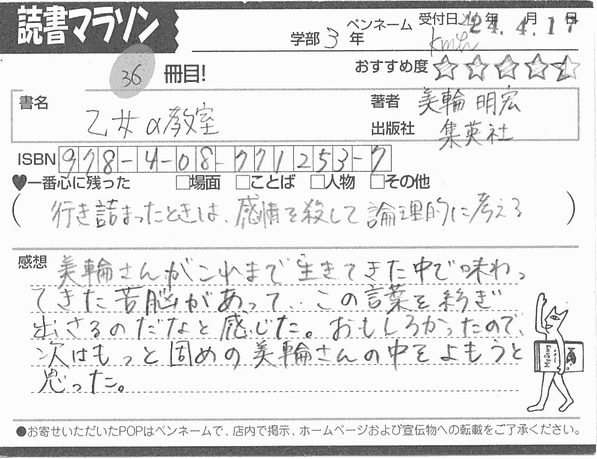 読書マラソン
学部 3 年
ペンネーム kmth
受付日 年 月 日
24.4.17
36 冊目!
おすすめ度 ☆☆☆☆☆
書名 乙女の教室
著者 美輪明宏
出版社 集英社
ISBN 978-4-08-771253-7
♥一番心に残った □場面 □ことば □人物 □その他
(行き詰まったときは、感情を殺して論理的に考える)
感想 美輪さんがこれまで生きてきた中で味わっ
てきた苦脳があって‥この言葉を紡ぎ
出さるのだなと感じた。おもしろかったので、
次はもっと固めの美輪さんの中をよもうと
思った。
●お寄せいただいたPOPはペンネームで、店内で掲示、ホームページおよび宣伝物への転載をご了承ください。